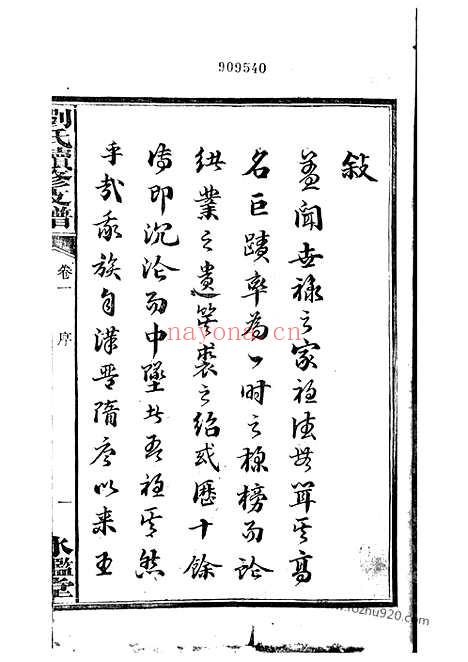 909540
敍
蓋聞世祿之家祖德世箕其高
名巨蹟率為一時之標榜而論
供業之遺箕裘之紹或歷十餘
傳即沉淪而中墜者吾祖其然
乎哉我族自漢晉隋唐以來王
劉氏續修支譜
卷一
序
一
水鑑堂
nayona.cn
www.rozhu920.com